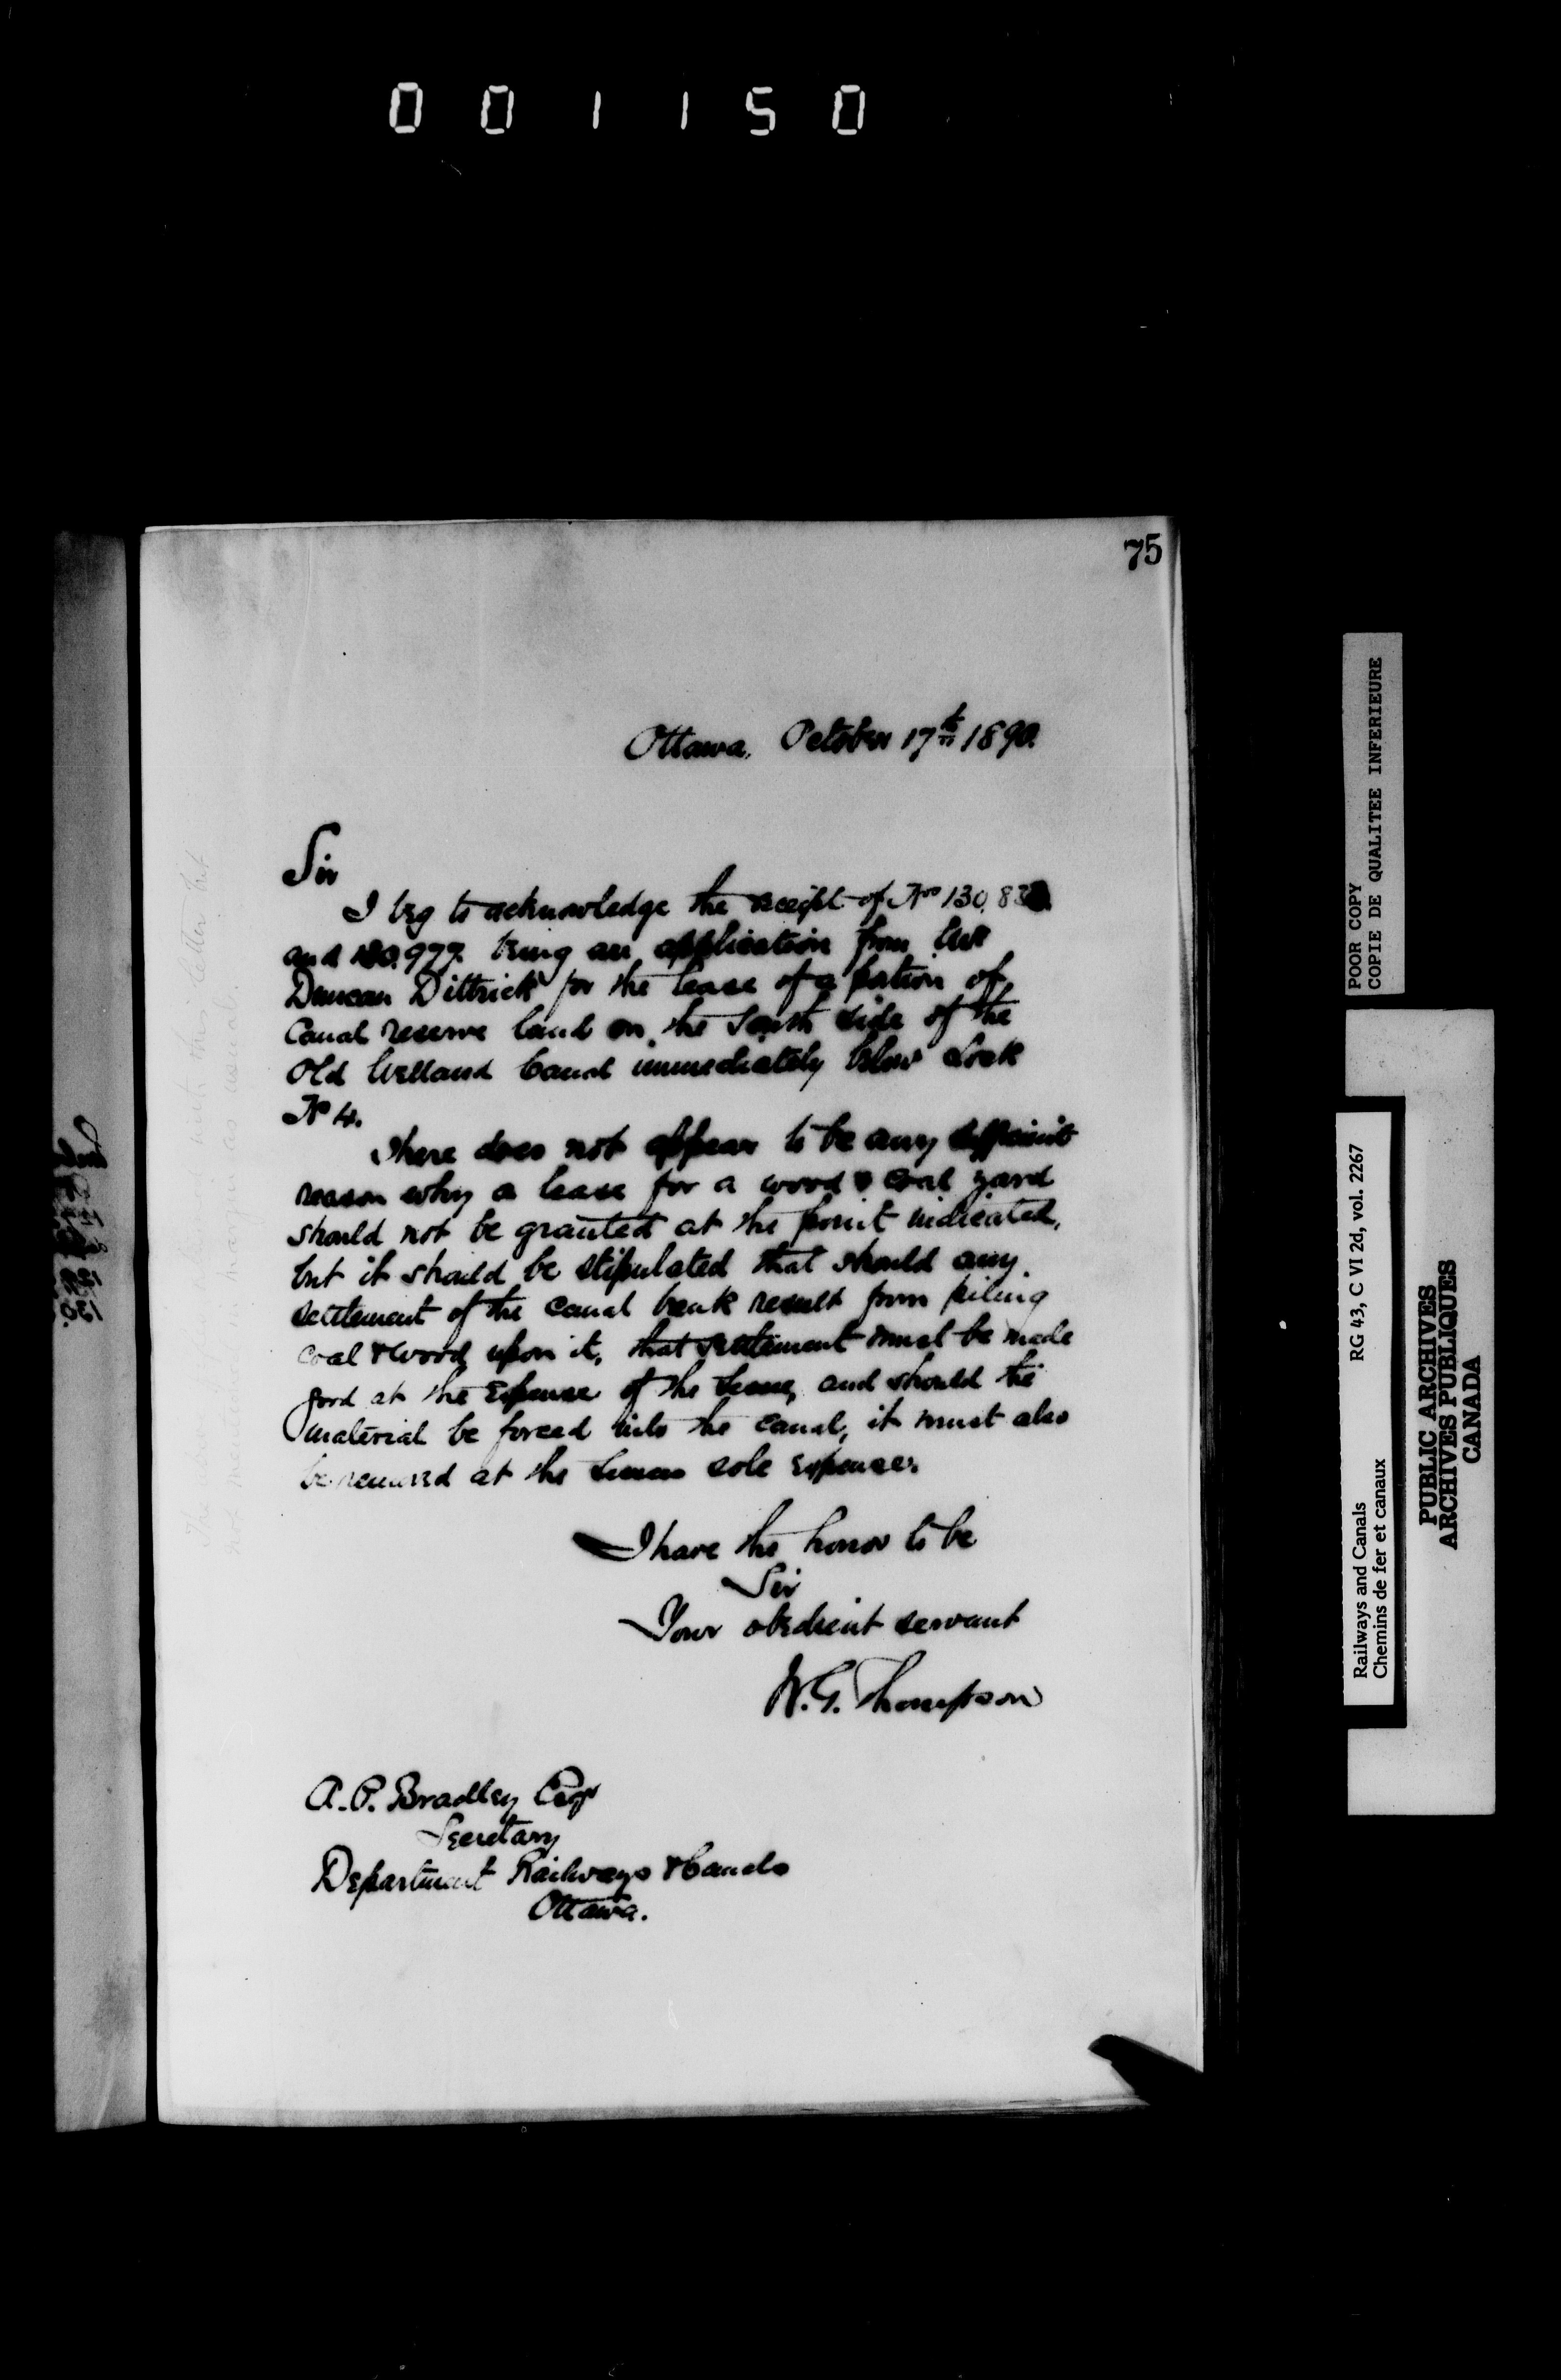 001150
75
Ottawa, October 17th 1890.
Sir
I beg to acknowledge the receipt of Nos 130,83
and 130,977. being an application from Mr
Duncan Dittrick for the lease of a portion of
Canal reserve land on the South side of the
Old Welland Canal immediately below Lock
No 4.
There does not appear to be any sufficient
reason why a lease for a wood & coal yard
should not be granted at the point indicated,
but it should be stipulated that should any
settlement of the canal bank result from piling
coal & wood upon it, that settlement must be made
good at the expense of the lessee, and should the
material be forced into the canal, it must also
be removed at the lessees sole expense.
I have the honor to be
Sir
Your obedient servant
W.G. Thompson
A.P. Bradley Esqr
Secretary
Department Railways & Canals
Ottawa.
POOR COPY
COPIE DE QUALITEE INFERIEURE
RG 43, C VI 2d, vol. 2267
Railways and Canals
Chemins de fer et canaux
PUBLIC ARCHIVES
ARCHIVES PUBLIQUES
CANADA